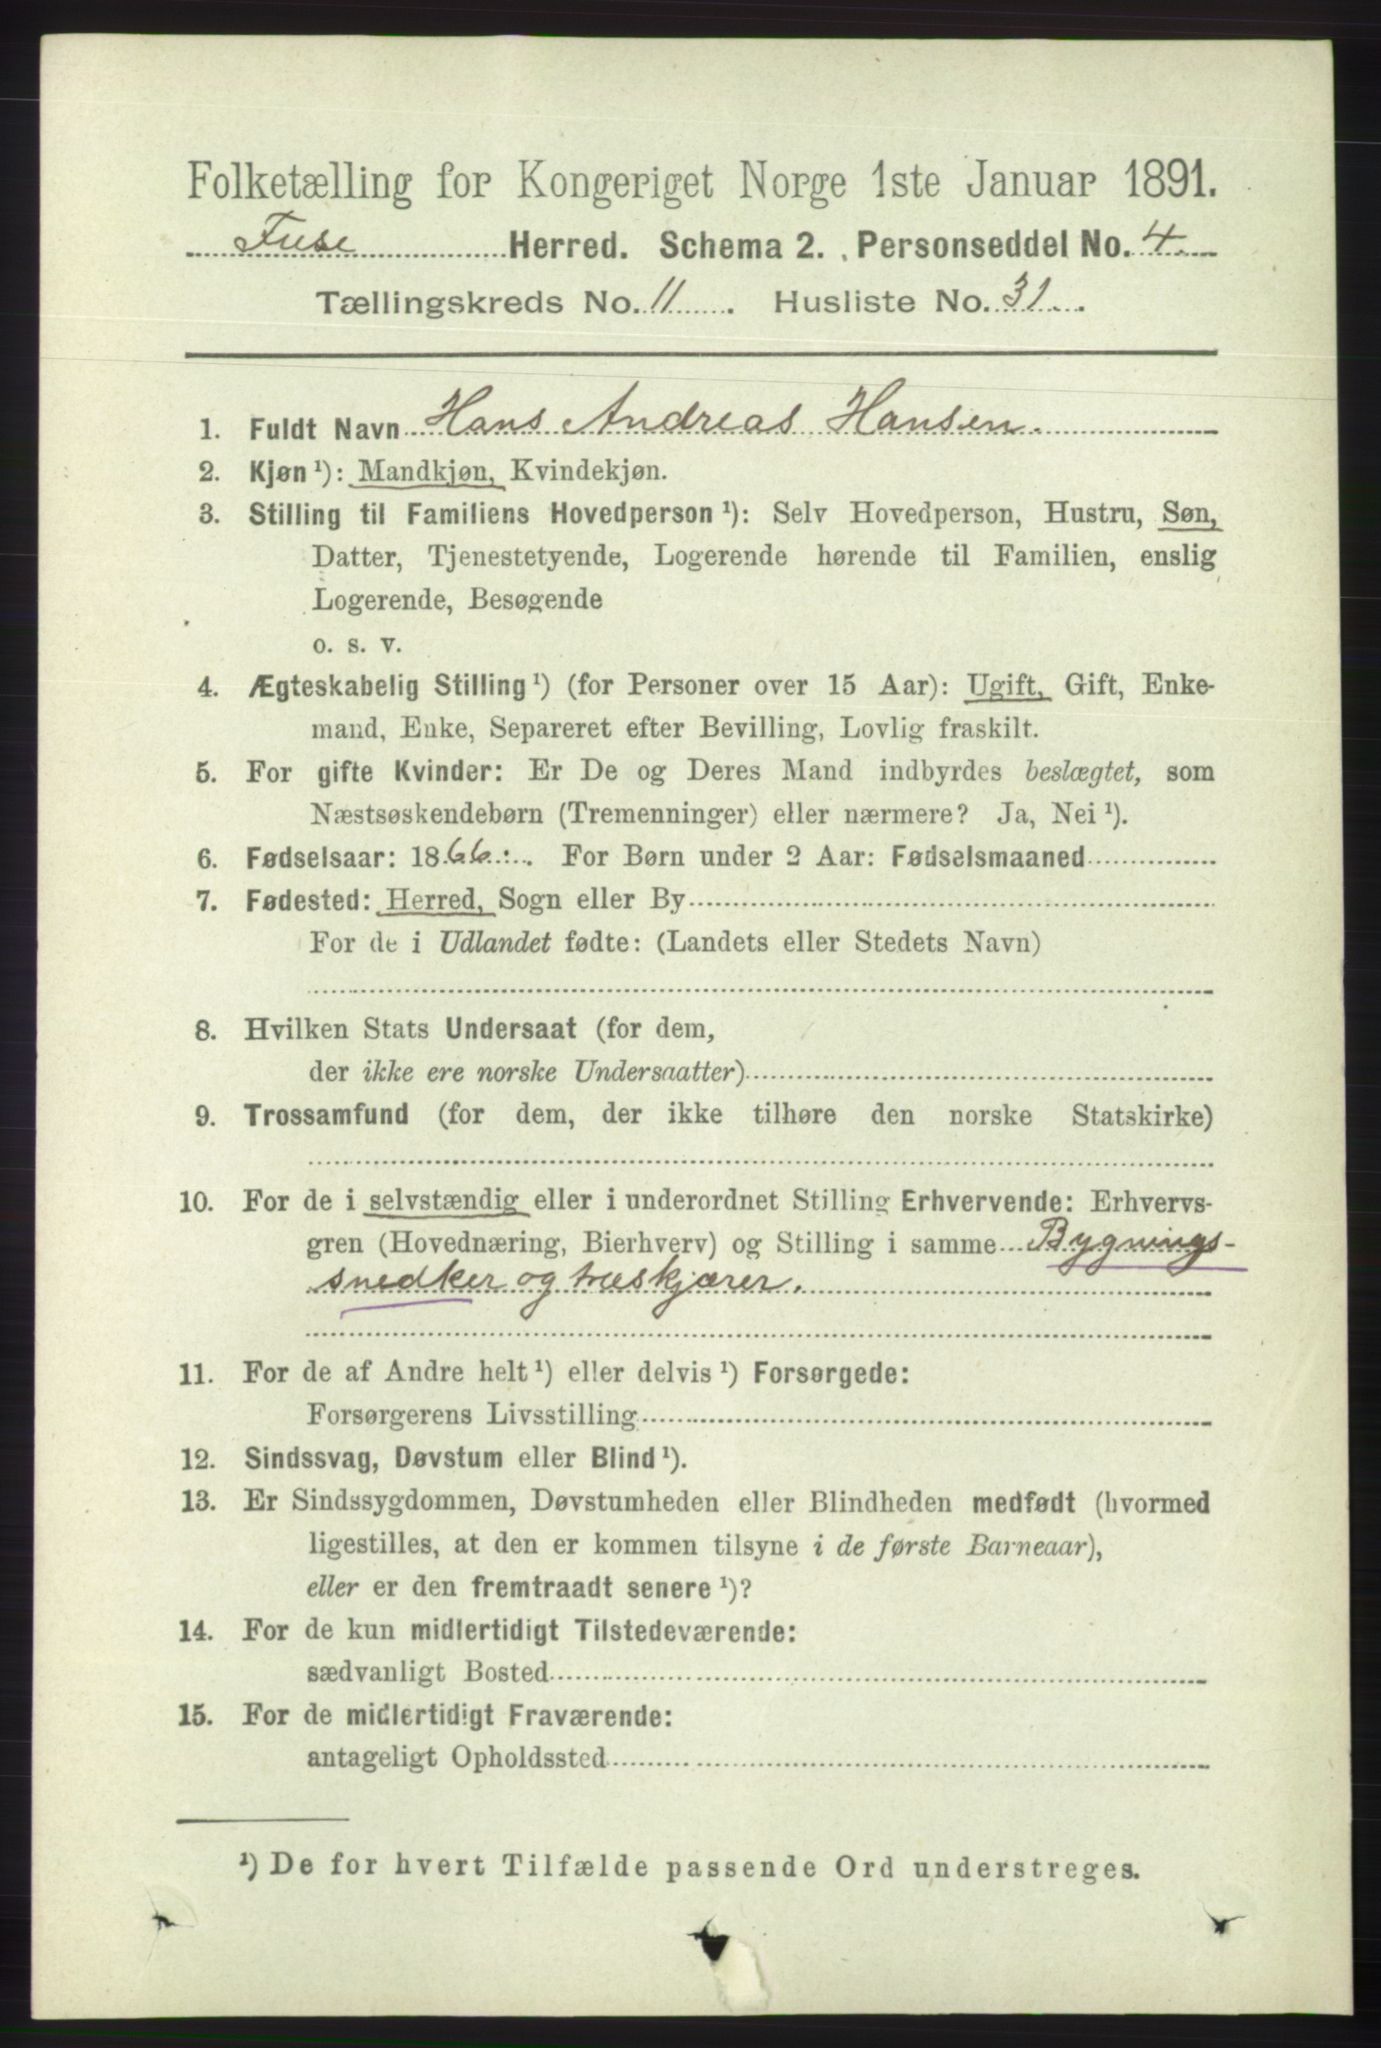 Folketælling for Kongeriget Norge 1ste Januar 1891.
Fuse Herred. Schema 2. Personseddel No. 4
Tællingskreds No. 11. Husliste No. 31.
1. Fuldt Navn Hans Andreas Hansen.
2. Kjøn ¹): Mandkjøn, Kvindekjøn.
3. Stilling til Familiens Hovedperson ¹): Selv Hovedperson, Hustru, Søn,
Datter, Tjenestetyende, Logerende hørende til Familien, enslig
Logerende, Besøgende
o. s. v.
4. Ægteskabelig Stilling ¹) (for Personer over 15 Aar): Ugift, Gift, Enke-
mand, Enke, Separeret efter Bevilling, Lovlig fraskilt.
5. For gifte Kvinder: Er De og Deres Mand indbyrdes beslægtet, som
Næstsøskendebørn (Tremenninger) eller nærmere? Ja, Nei ¹).
6. Fødselsaar: 1866. For Børn under 2 Aar: Fødselsmaaned
7. Fødested: Herred, Sogn eller By
For de i Udlandet fødte: (Landets eller Stedets Navn)
8. Hvilken Stats Undersaat (for dem,
der ikke ere norske Undersaatter)
9. Trossamfund (for dem, der ikke tilhøre den norske Statskirke)
10. For de i selvstændig eller i underordnet Stilling Erhvervende: Erhvervs-
gren (Hovednæring, Bierhverv) og Stilling i samme Bygnings-
snedker og træskjærer.
11. For de af Andre helt ¹) eller delvis ¹) Forsørgede:
Forsørgerens Livsstilling
12. Sindssvag, Døvstum eller Blind ¹).
13. Er Sindssygdommen, Døvstumheden eller Blindheden medfødt (hvormed
ligestilles, at den er kommen tilsyne i de første Barneaar),
eller er den fremtraadt senere ¹)?
14. For de kun midlertidigt Tilstedeværende:
sædvanligt Bosted
15. For de midlertidigt Fraværende:
antageligt Opholdssted
¹) De for hvert Tilfælde passende Ord understreges.